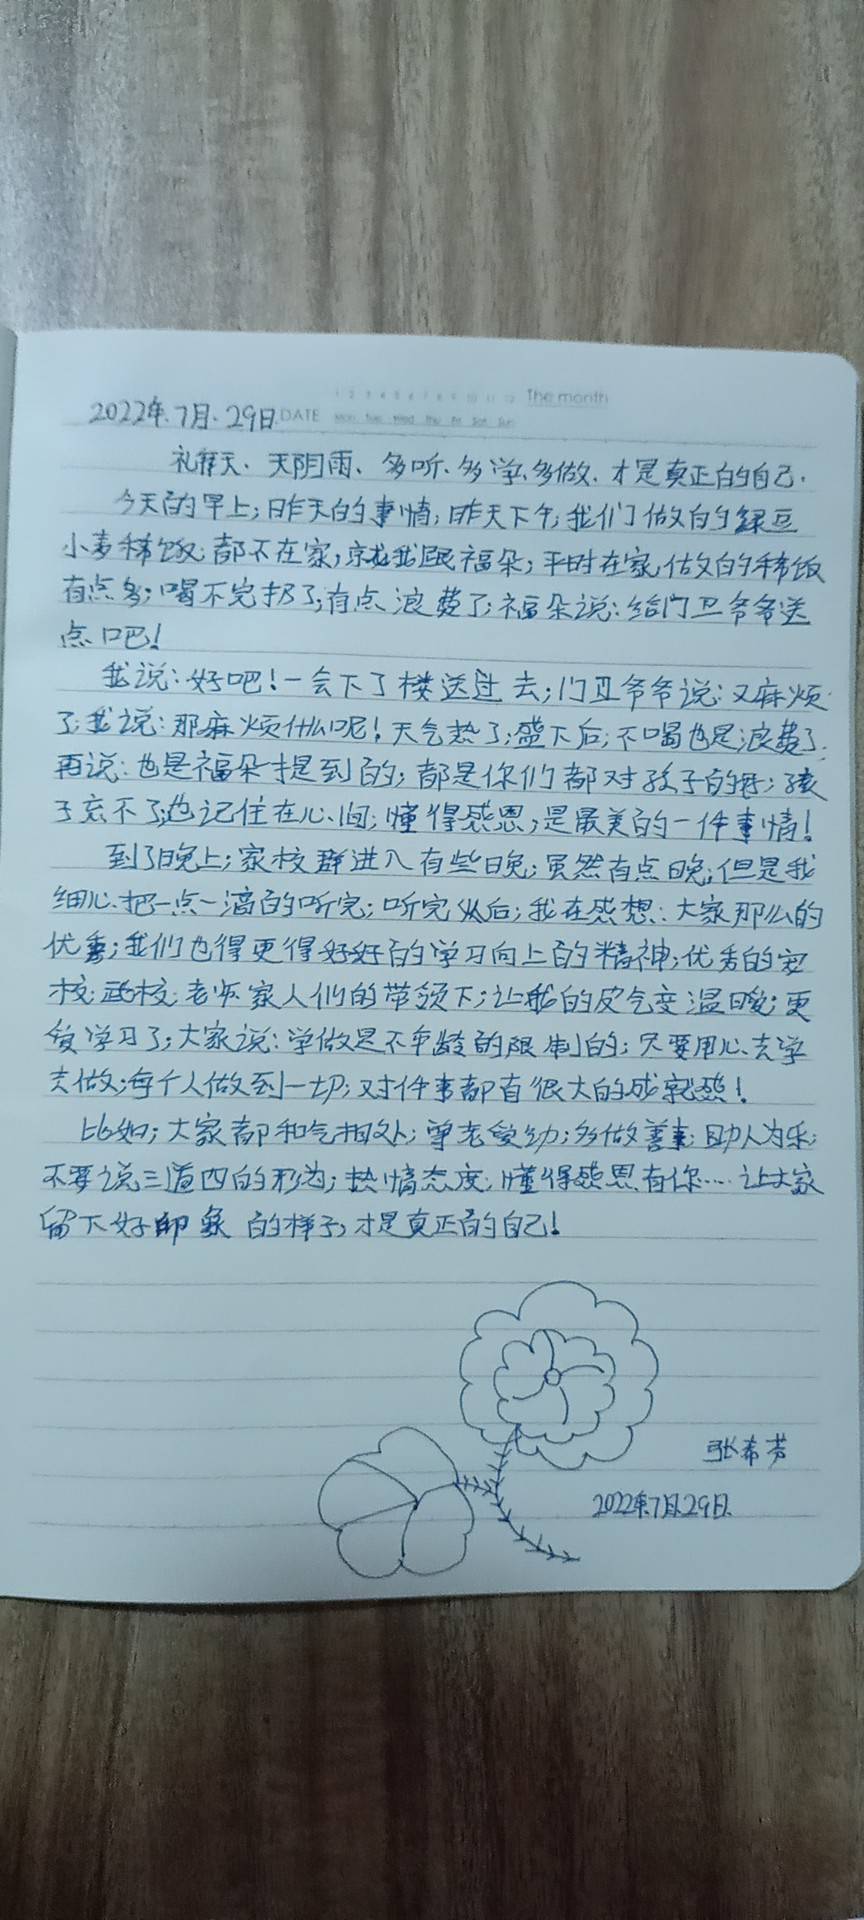 2022年.7月.29日.DATE 1 2 3 4 5 6 7 8 9 10 11 12 The month
Mon Tue Wed Thu Fri Sat Sun
礼拜天、天阴雨、多听、多学、多做、才是真正的自己.
今天的早上;昨天的事情;昨天下午;我们做的绿豆
小麦稀饭;都不在家;就我跟福朵;平时在家做的稀饭
有点多;喝不完扔了;有点浪费了;福朵说:给门卫爷爷送
点吧!
我说:好吧!一会下了楼送过去;门卫爷爷说:又麻烦
了;我说:那麻烦什么呢!天气热了;盛下后;不喝也是浪费了;
再说:也是福朵提到的;都是你们都对孩子的好;孩
子忘不了;也记住在心间;懂得感恩;是最美的一件事情!
到了晚上;家校群进入有些晚;虽然有点晚;但是我
细心、把一点一滴的听完;听完以后;我在感想:大家那么的
优秀;我们也得更得好好的学习向上的精神;优秀的家
校;武校;老师家人们的带领下;让我的皮气变温暖;更
爱学习了;大家说:学做是不年龄的限制的;只要用心、去学
去做;每个人做到一切;对件事都有很大的成就感!
比如;大家都和气相处;尊老爱幼;多做善事;助人为乐;
不要说三道四的形为;热情态度;懂得感恩有你……让大家
留下好印象的样子;才是真正的自己!
张希芳
2022年.7月.29日.